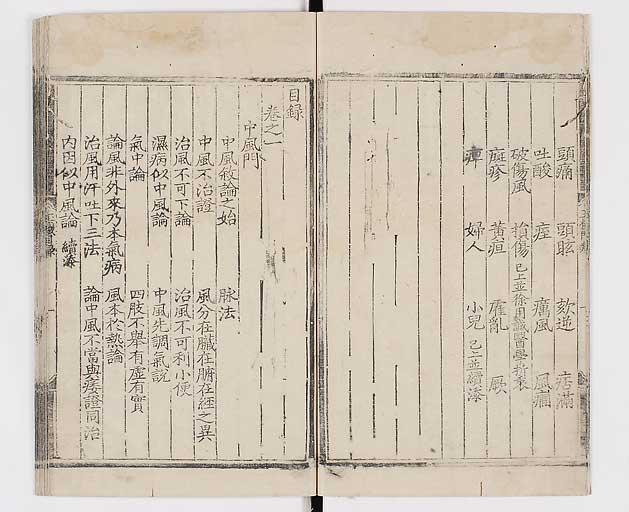 頭痛 頭眩 欬逆 痞滿
吐酸 痓 癘風 風癇
破傷風 損傷 已上並徐用誠醫學折衷
癍疹 黃疸 霍亂 厥
痺 婦人 小兒 已上並續添
目錄
卷之一
中風門
中風敘論之始 脉法
中風不治證 風分在臟在腑在經之異
治風不可下論 治風不可利小便
濕病似中風論 中風先調氣說
氣中論 四肢不舉有虛有實
論風非外來乃本氣病 風本於熱論
治風用汗吐下三法 論中風不當與痿證同治
內因似中風論 續添